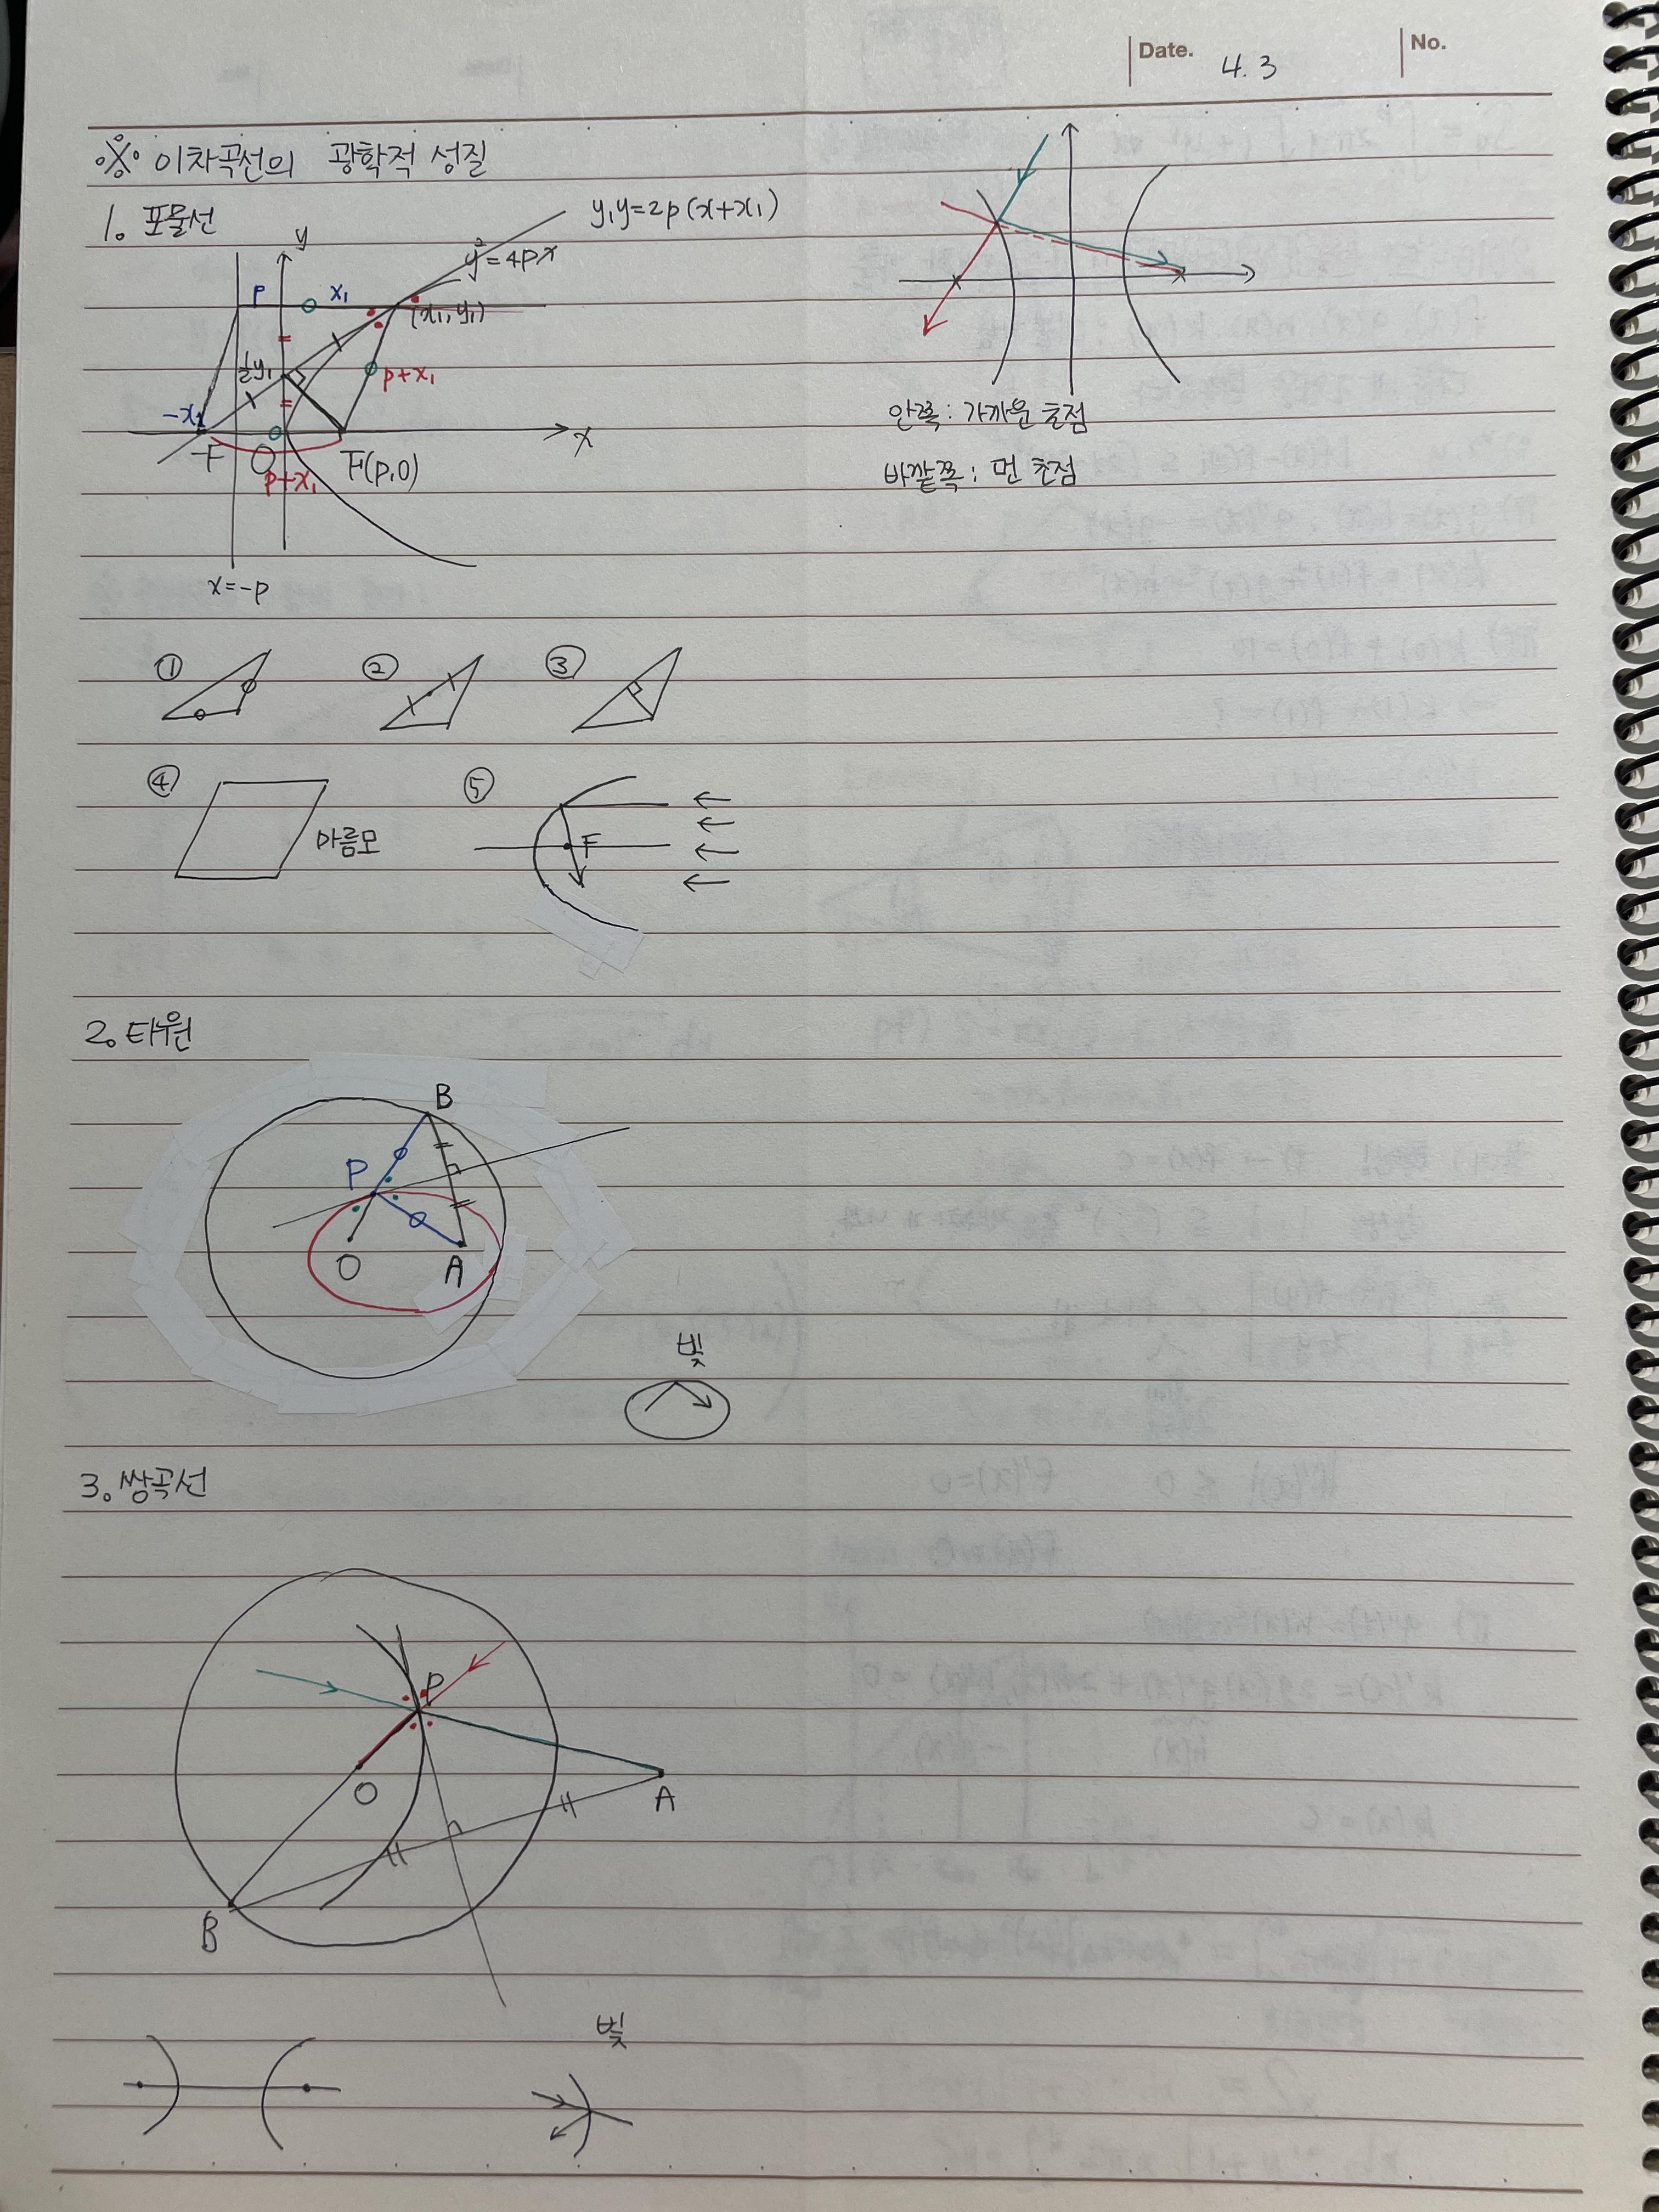 Date. 4.3 No.
※ 이차곡선의 광학적 성질
1. 포물선
y₁y=2p(x+x₁)
y
y²=4px
P x₁
(x₁,y₁)
½y₁
p+x₁
-x₁
x
F O
F(p,0)
p+x₁
x=-p
안쪽: 가까운 초점
바깥쪽: 먼 초점
① ② ③
④ ⑤
마름모
F
2. 타원
B
P
O A
빛
3. 쌍곡선
P
O
A
B
빛